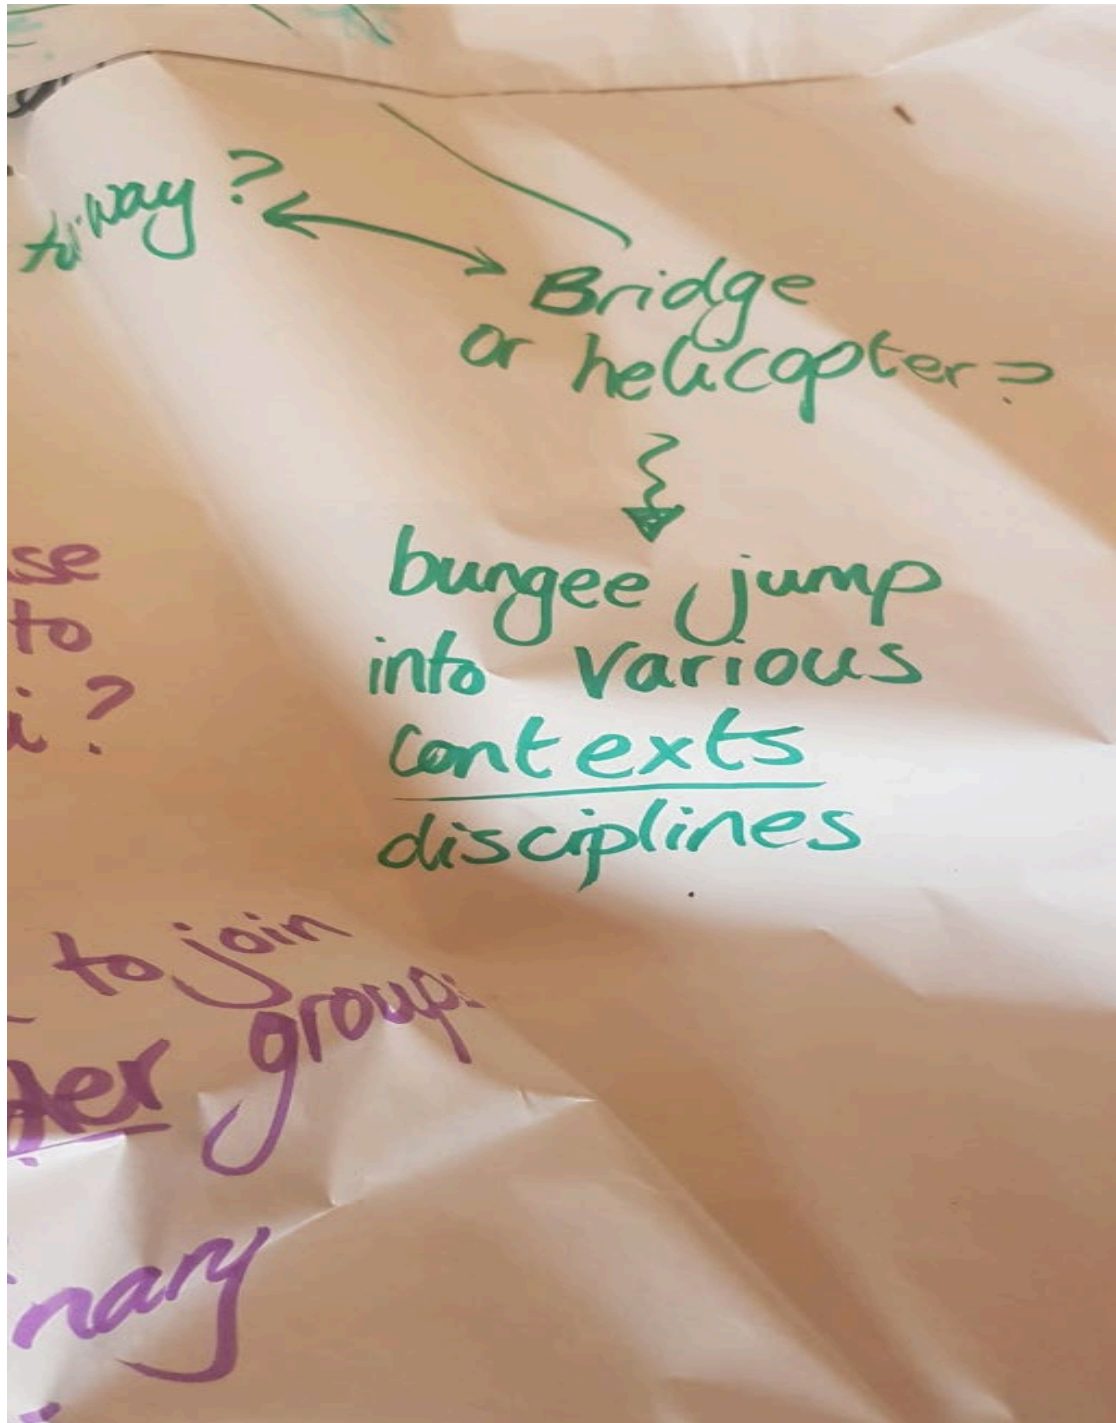 way?
Bridge
or helicopter?
bungee jump
into various
contexts
disciplines
se
to
i?
to join
groups
nary